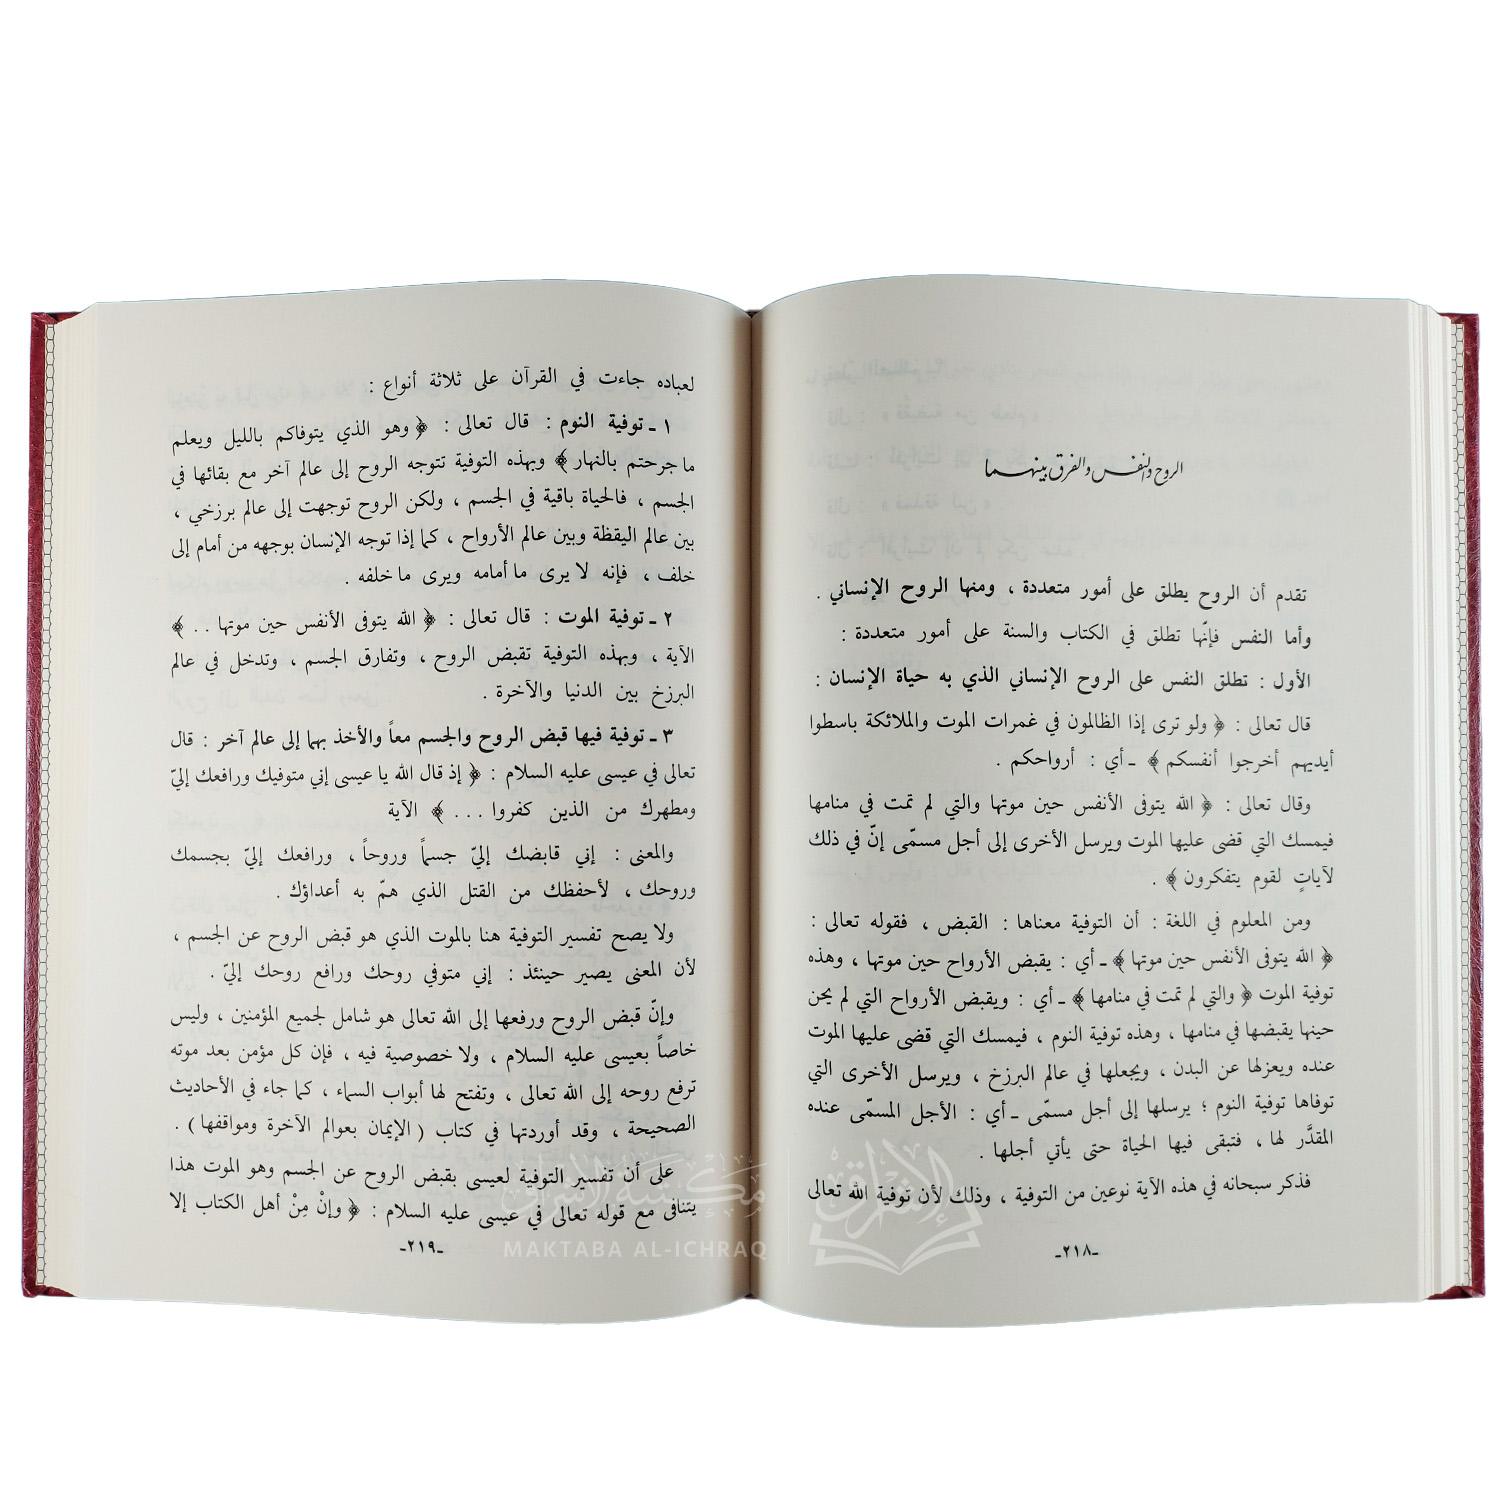 الروح والنفس والفرق بينهما
تقدم أن الروح يطلق على أمور متعددة ، ومنها الروح الإنساني .
وأما النفس فإنّها تطلق في الكتاب والسنة على أمور متعددة :
الأول : تطلق النفس على الروح الإنساني الذي به حياة الإنسان :
قال تعالى : ﴿ ولو ترى إذا الظالمون في غمرات الموت والملائكة باسطوا
أيديهم أخرجوا أنفسكم ﴾ ـ أي : أرواحكم .
وقال تعالى : ﴿ الله يتوفى الأنفس حين موتها والتي لم تمت في منامها
فيمسك التي قضى عليها الموت ويرسل الأخرى إلى أجل مسمّى إنّ في ذلك
لآياتٍ لقوم يتفكرون ﴾ .
ومن المعلوم في اللغة : أن التوفية معناها : القبض ، فقوله تعالى :
﴿ الله يتوفى الأنفس حين موتها ﴾ ـ أي : يقبض الأرواح حين موتها ، وهذه
توفية الموت ﴿ والتي لم تمت في منامها ﴾ ـ أي : ويقبض الأرواح التي لم يحن
حينها يقبضها في منامها ، وهذه توفية النوم ، فيمسك التي قضى عليها الموت
عنده ويعزلها عن البدن ، ويجعلها في عالم البرزخ ، ويرسل الأخرى التي
توفاها توفية النوم ؛ يرسلها إلى أجل مسمّى ـ أي : الأجل المسمّى عنده
المقدَّر لها ، فتبقى فيها الحياة حتى يأتي أجلها .
فذكر سبحانه في هذه الآية نوعين من التوفية ، وذلك لأن توفية الله تعالى
ـ٢١٨ـ
لعباده جاءت في القرآن على ثلاثة أنواع :
١ ـ توفية النوم : قال تعالى : ﴿ وهو الذي يتوفاكم بالليل ويعلم
ما جرحتم بالنهار ﴾ وبهذه التوفية تتوجه الروح إلى عالم آخر مع بقائها في
الجسم ، فالحياة باقية في الجسم ، ولكن الروح توجهت إلى عالم برزخي ،
بين عالم اليقظة وبين عالم الأرواح ، كما إذا توجه الإنسان بوجهه من أمام إلى
خلف ، فإنه لا يرى ما أمامه ويرى ما خلفه .
٢ ـ توفية الموت : قال تعالى : ﴿ الله يتوفى الأنفس حين موتها . . ﴾
الآية ، وبهذه التوفية تقبض الروح ، وتفارق الجسم ، وتدخل في عالم
البرزخ بين الدنيا والآخرة .
٣ ـ توفية فيها قبض الروح والجسم معاً والأخذ بهما إلى عالم آخر : قال
تعالى في عيسى عليه السلام : ﴿ إذ قال الله يا عيسى إني متوفيك ورافعك إليّ
ومطهرك من الذين كفروا . . . ﴾ الآية
والمعنى : إني قابضك إليّ جسماً وروحاً ، ورافعك إليّ بجسمك
وروحك ، لأحفظك من القتل الذي همّ به أعداؤك .
ولا يصح تفسير التوفية هنا بالموت الذي هو قبض الروح عن الجسم ،
لأن المعنى يصير حينئذ : إني متوفي روحك ورافع روحك إليّ .
وإنّ قبض الروح ورفعها إلى الله تعالى هو شامل لجميع المؤمنين ، وليس
خاصاً بعيسى عليه السلام ، ولا خصوصية فيه ، فإن كل مؤمن بعد موته
ترفع روحه إلى الله تعالى ، وتفتح لها أبواب السماء ، كما جاء في الأحاديث
الصحيحة ، وقد أوردتها في كتاب ( الإيمان بعوالم الآخرة ومواقفها ) .
على أن تفسير التوفية لعيسى بقبض الروح عن الجسم وهو الموت هذا
يتنافى مع قوله تعالى في عيسى عليه السلام : ﴿ وإنْ مِنْ أهل الكتاب إلا
ـ٢١٩ـ
مكتبة الإشراق
MAKTABA AL-ICHRAQ
الإشراق